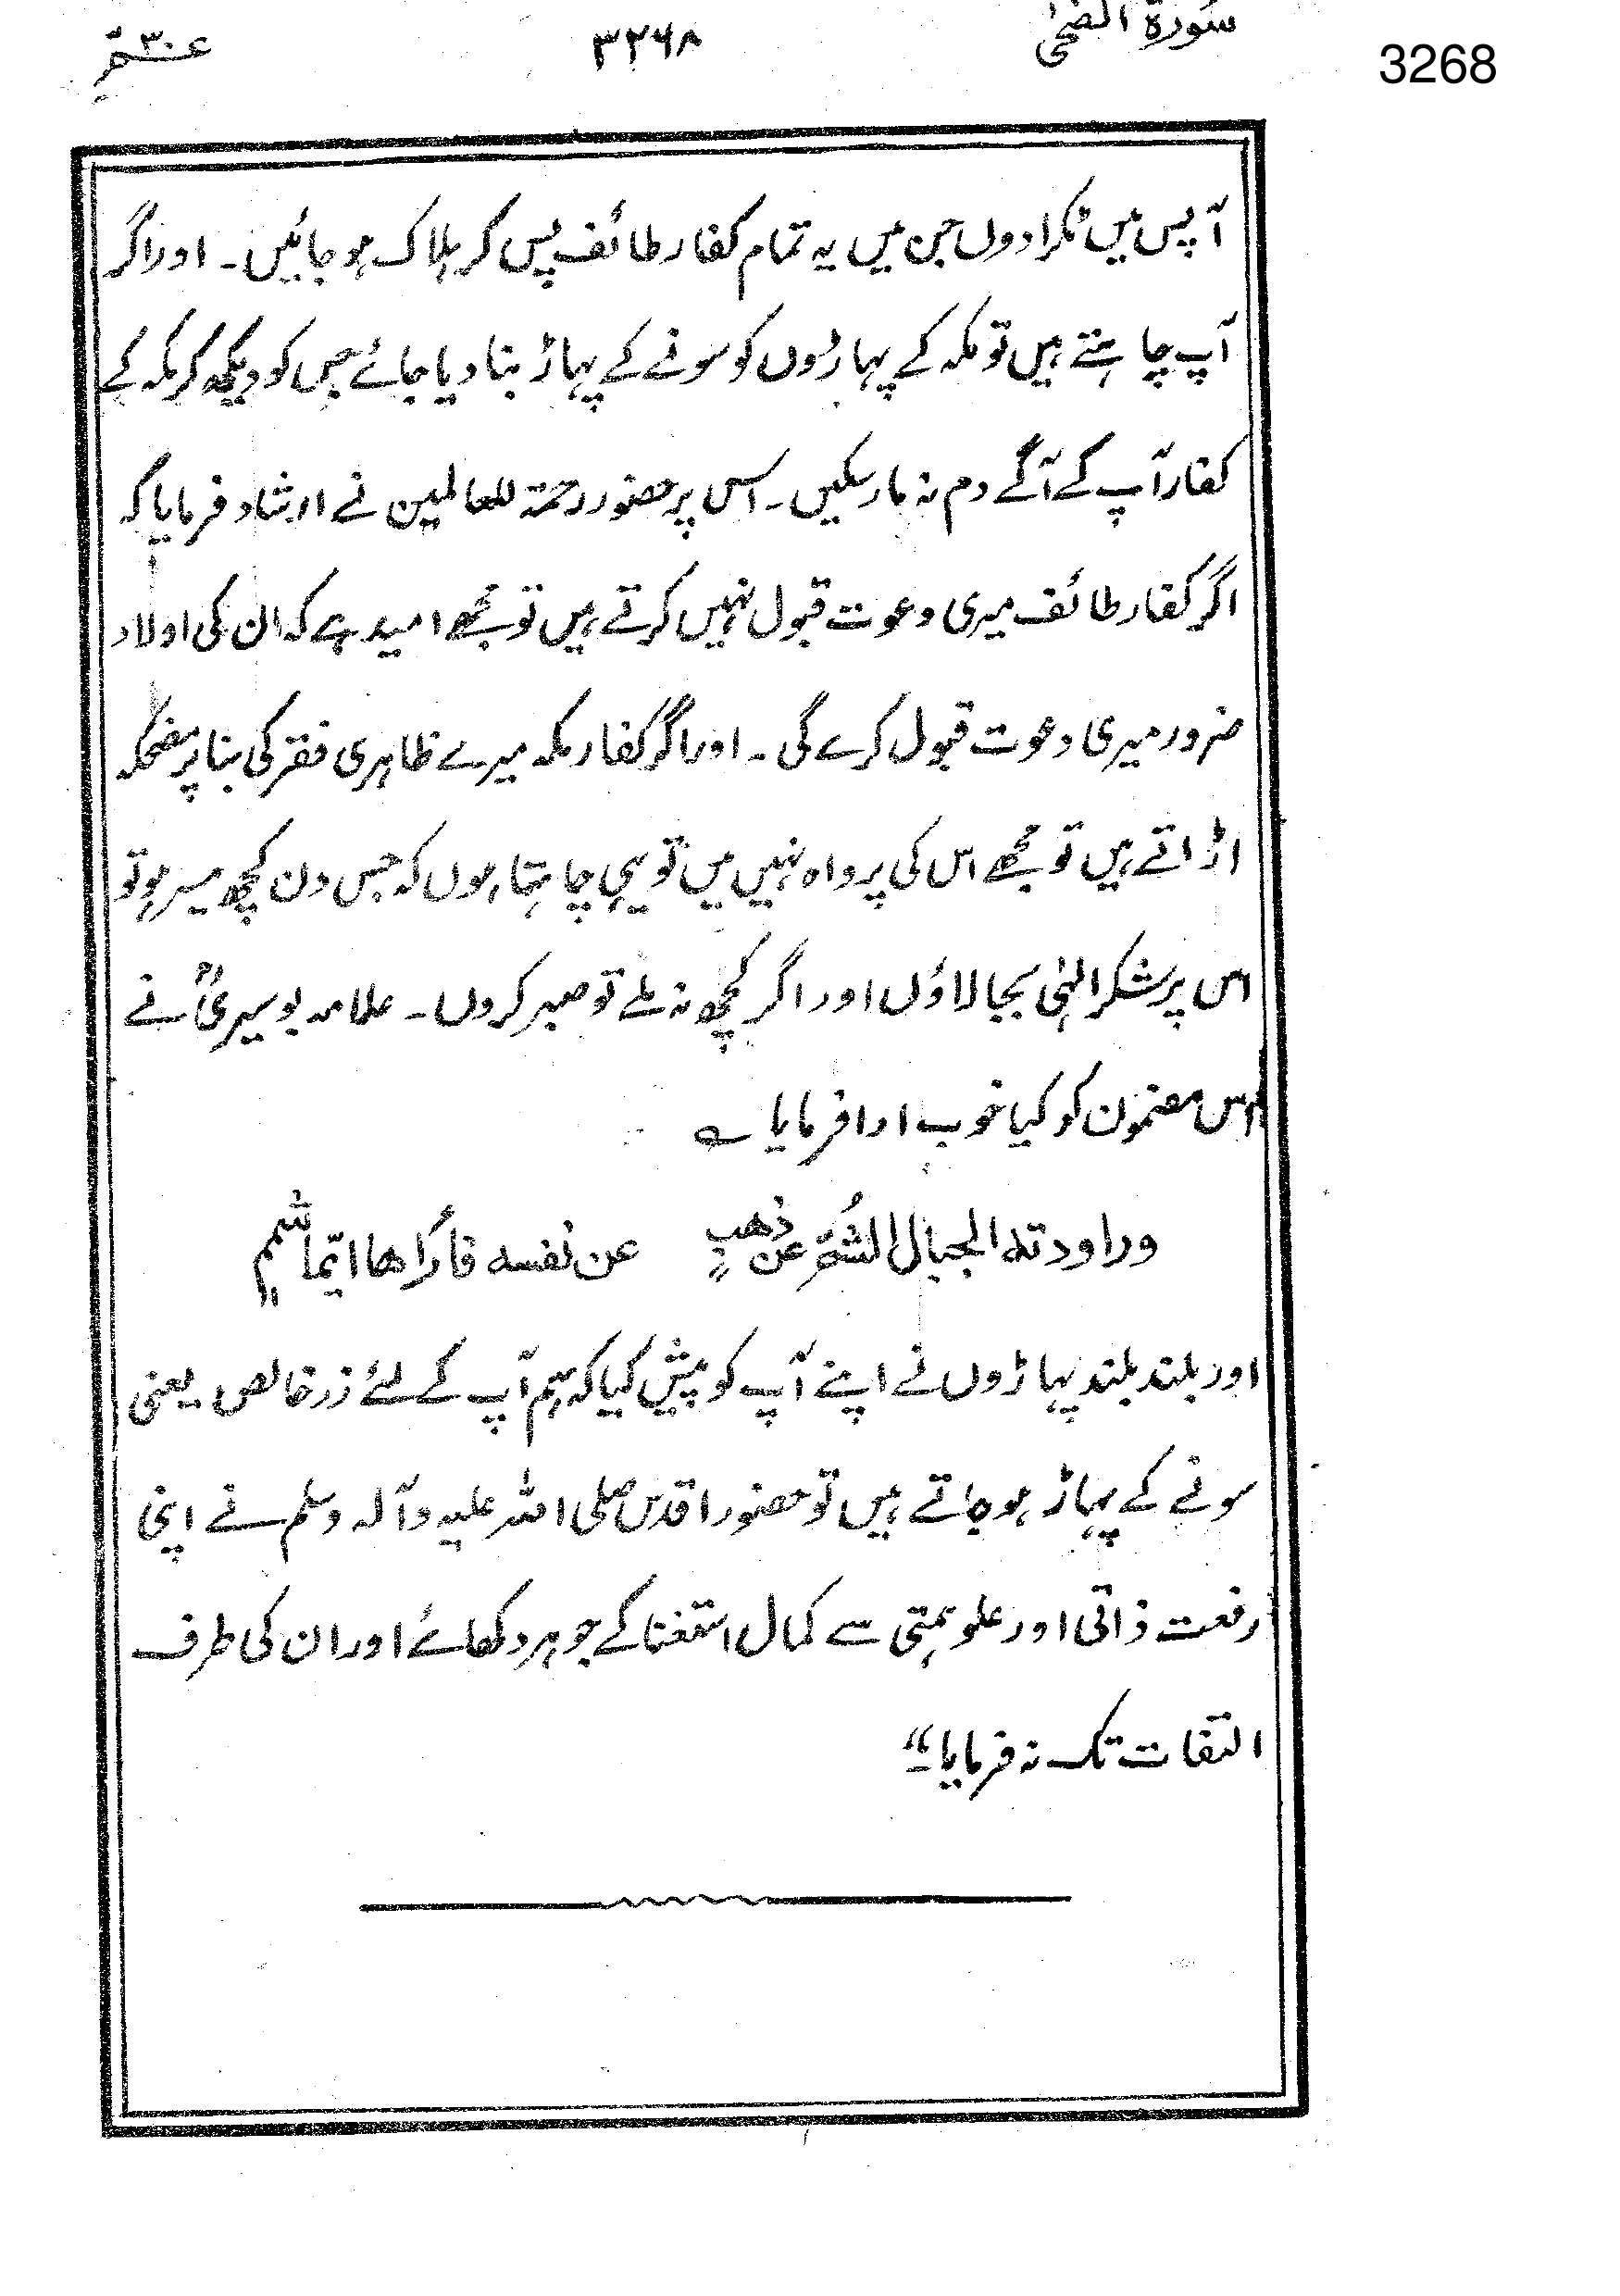 سُورۃ الضحٰی ۳۲۶۸ عۗم ۳۰
3268
آپس میں ٹکرا دوں جن میں یہ تمام کفار طائف پس کر ہلاک ہو جائیں۔ اور اگر
آپ چاہتے ہیں تو مکہ کے پہاڑوں کو سونے کے پہاڑ بنا دیا جائے جس کو دیکھ کر مکہ کے
کفار آپ کے آگے دم نہ مار سکیں۔ اس پر حضور رحمۃ للعالمین نے ارشاد فرمایا کہ
اگر کفار طائف میری دعوت قبول نہیں کرتے ہیں تو مجھے امید ہے کہ ان کی اولاد
ضرور میری دعوت قبول کرے گی۔ اور اگر کفار مکہ میرے ظاہری فقر کی بنا پر مضحکہ
اڑاتے ہیں تو مجھے اس کی پرواہ نہیں میں تو یہی چاہتا ہوں کہ جس دن کچھ میسر ہو تو
اس پر شکر الٰہی بجا لاؤں اور اگر کچھ نہ ملے تو صبر کروں۔ علامہ بوسیریؒ نے
اس مضمون کو کیا خوب ادا فرمایا ؎
وراودته الجبال الشُمّ عن ذهبٍ عن نفسه فاَرَاها ایّما شممٍ
اور بلند بلند پہاڑوں نے اپنے آپ کو پیش کیا کہ ہم آپ کے لئے زر خالص یعنی
سونے کے پہاڑ ہو جاتے ہیں تو حضور اقدس صلی اللہ علیہ وآلہ وسلم نے اپنی
رفعت ذاتی اور علو ہمتی سے کمال استغنا کے جوہر دکھائے اور ان کی طرف
التفات تک نہ فرمایا۔"